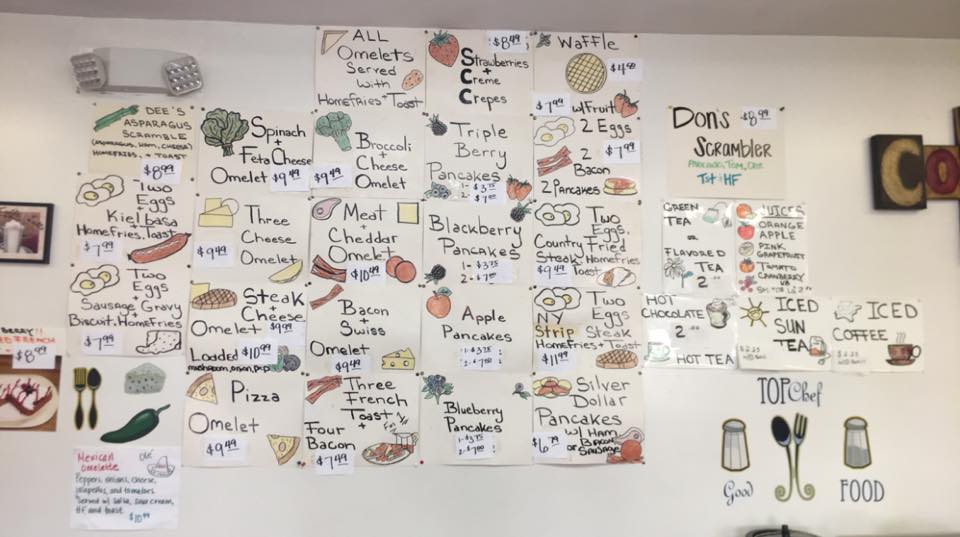 ALL
Omelets
Served
with
Homefries + Toast
$8.49
Strawberries
+
Creme
Crepes
Waffle
$4.00
$7.99
w/Fruit
DEE'S
ASPARAGUS
SCRAMBLE
(ASPARAGUS, HAM, CHEESE)
HOMEFRIES, + TOAST
$8.99
Spinach
+
Feta Cheese
Omelet $9.49
Broccoli
+
Cheese
$9.49
Omelet
Triple
Berry
Pancakes
1- $3.75
2- $7.00
2 Eggs
$7.99
2
Bacon
2 Pancakes
Don's
$8.99
Scrambler
Tst + HF
Two
Eggs
+
Kielbasa
HomeFries, Toast
$7.99
Three
Cheese
$9.49
Omelet
Meat
+
Cheddar
Omelet
$10.49
Blackberry
Pancakes
1- $3.75
2- $7.00
Two
Eggs,
Country Fried
Steak, Homefries
$9.49
Toast
GREEN
TEA
OR
FLAVORED
TEA
2
JUICES
ORANGE
APPLE
PINK
GRAPEFRUIT
TOMATO
CRANBERRY
V8
Two
Eggs
+
Sausage Gravy
Biscuit, HomeFries
$7.99
Steak
+
Cheese
Omelet $9.99
Loaded $10.99
Bacon
+
Swiss
Omelet
$9.49
Apple
Pancakes
1- $3.75
2- $7.00
Two
Eggs
NY
Strip Steak
HomeFries + Toast
$11.99
HOT
CHOCOLATE
2
HOT TEA
ICED
SUN
TEA
$2.25
ICED
COFFEE
$2.25
BERRY!!
$8.99
Pizza
Omelet
$9.49
Three
French
Toast
+
Four
Bacon
$7.49
Blueberry
Pancakes
1- $3.75
2- $7.00
Silver
Dollar
Pancakes
w/ HAM
BACON
or SAUSAGE
$6.79
TOP Chef
Good
FOOD
Mexican
Omelette
Olé
Peppers, onions, cheese,
jalapeños, and tomatoes.
Served w/ salsa, sour cream,
HF and toast.
$10.99
CO